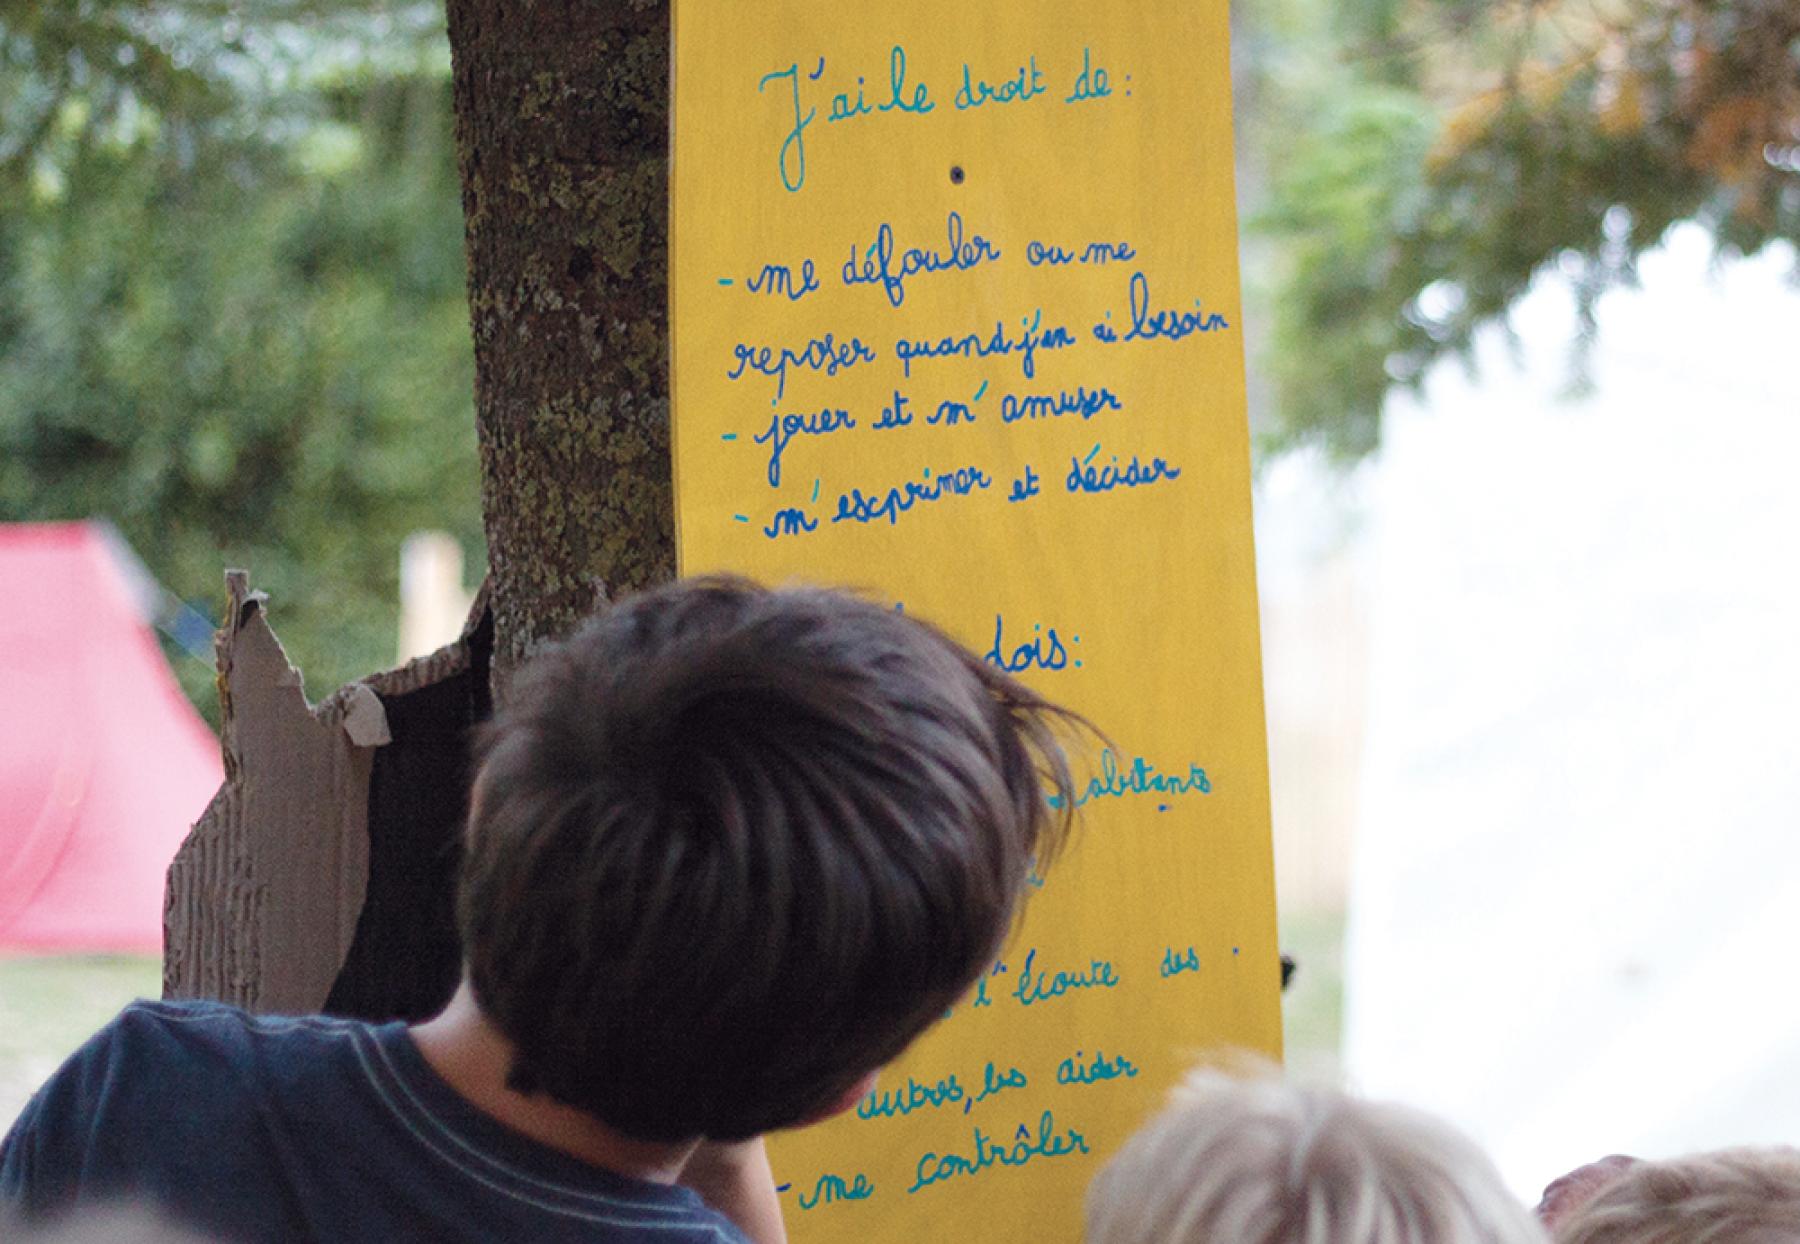 J'ai le droit de :
- me défouler ou me
reposer quand j'en ai besoin
- jouer et m'amuser
- m'exprimer et décider
dois :
abitants
l'écoute des
autres, les aider
- me contrôler